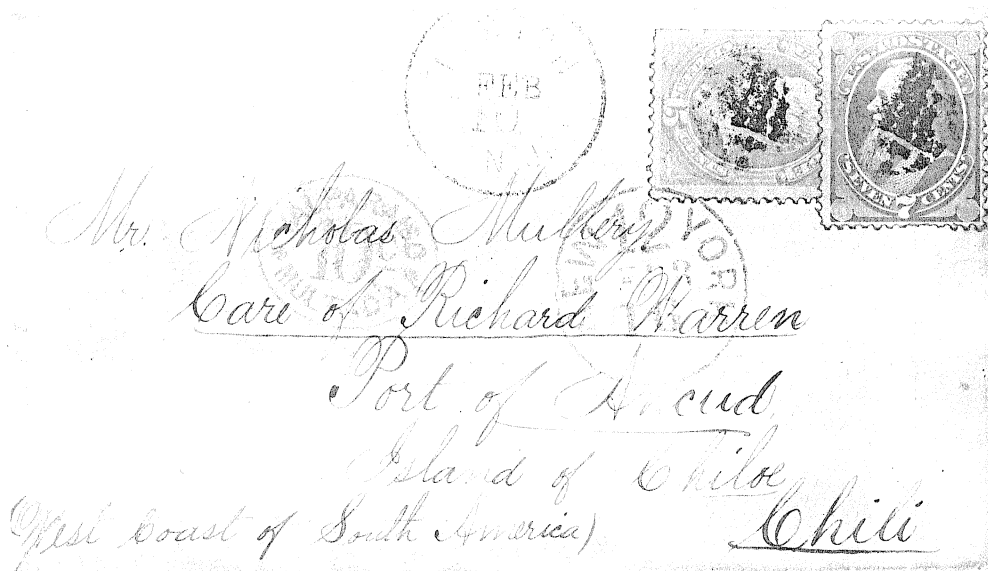 FEB
10
N.Y.
U.S. POSTAGE
SEVEN 7 CENTS
NEW YORK
10
Mr. Nicholas Mullery
Care of Richard Warren
Port of Ancud
Island of Chiloe
(West Coast of South America)
Chili